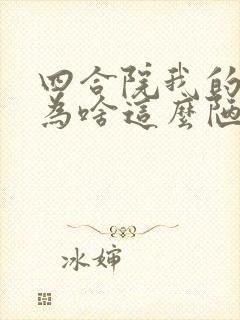 四合院我的
為啥這麼陋
冰婶